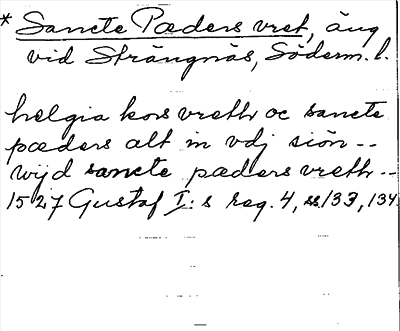 * Sancte Pæders vret, äng
vid Strängnäs, Söderm. l.
helgia kors vreth oc sancte
pæders alt in vdj siön --
wijd sancte pæders vreth --
1527 Gustaf I:s reg. 4, ss. 133, 134.